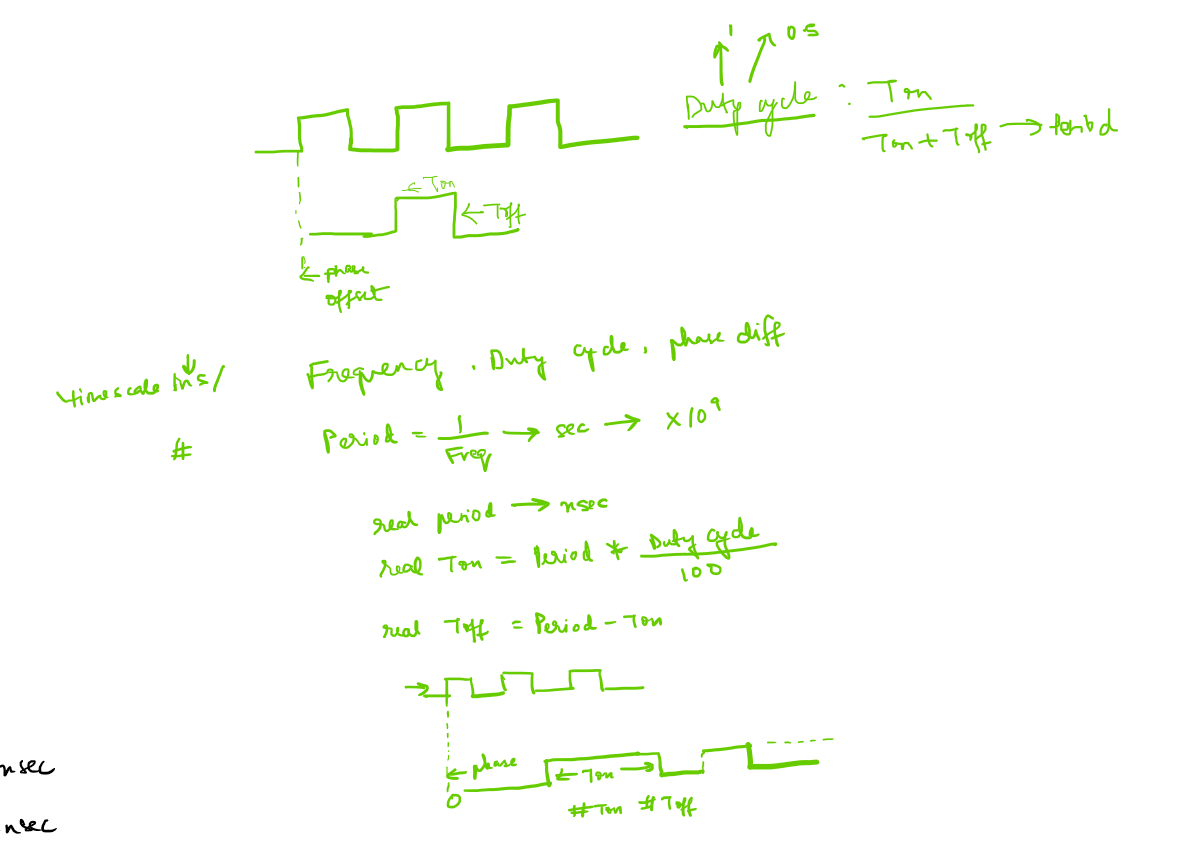 1 0 s
Duty cycle : Ton
Ton + Toff → Period
← Ton
← Toff
← phase
offset
Frequency, Duty cycle, phase diff
timescale 1ns/
Period = 1 → sec → × 10⁹
Freq
#
real period → nsec
real Ton = Period * Duty cycle
100
real Toff = Period - Ton
← phase
← Ton →
nsec
0
#Ton #Toff
nsec